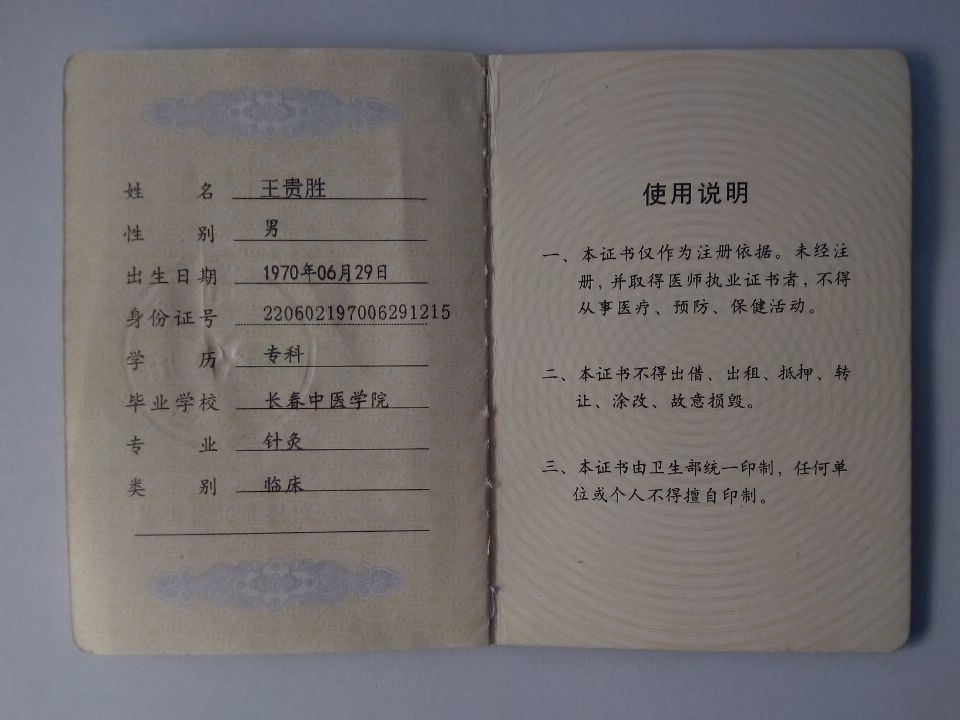 姓 名 王贵胜
性 别 男
出生日期 1970年06月29日
身份证号 220602197006291215
学 历 专科
毕业学校 长春中医学院
专 业 针灸
类 别 临床
使用说明
一、本证书仅作为注册依据。未经注
册,并取得医师执业证书者,不得
从事医疗、预防、保健活动。
二、本证书不得出借、出租、抵押、转
让、涂改、故意损毁。
三、本证书由卫生部统一印制,任何单
位或个人不得擅自印制。